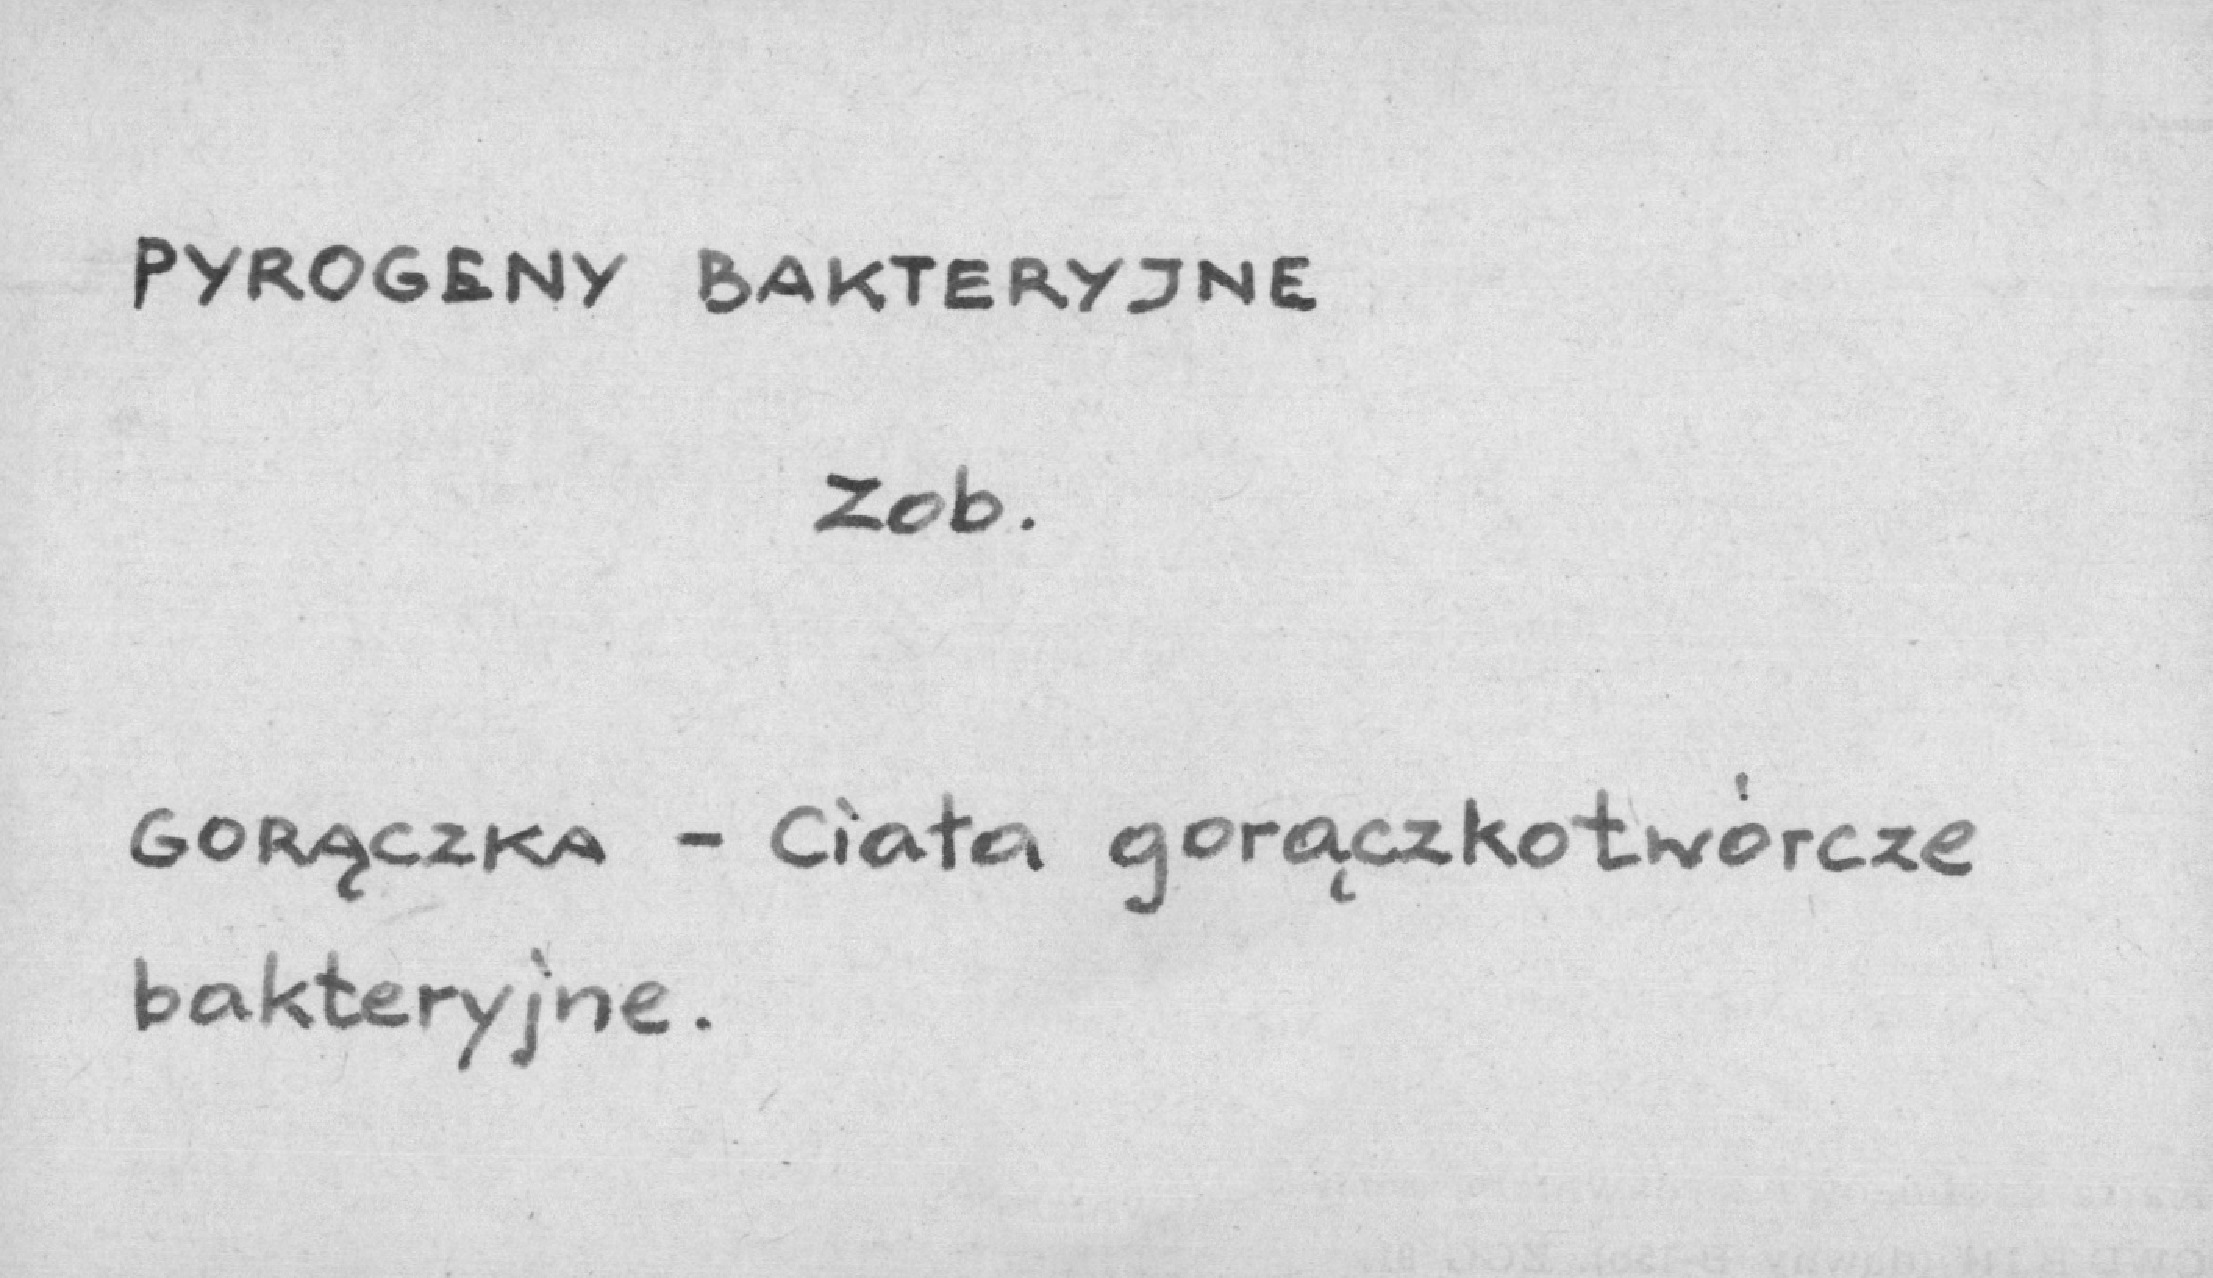 PYROGENY BAKTERYJNE
Zob.
GORĄCZKA - Ciała gorączkotwórcze
bakteryjne.